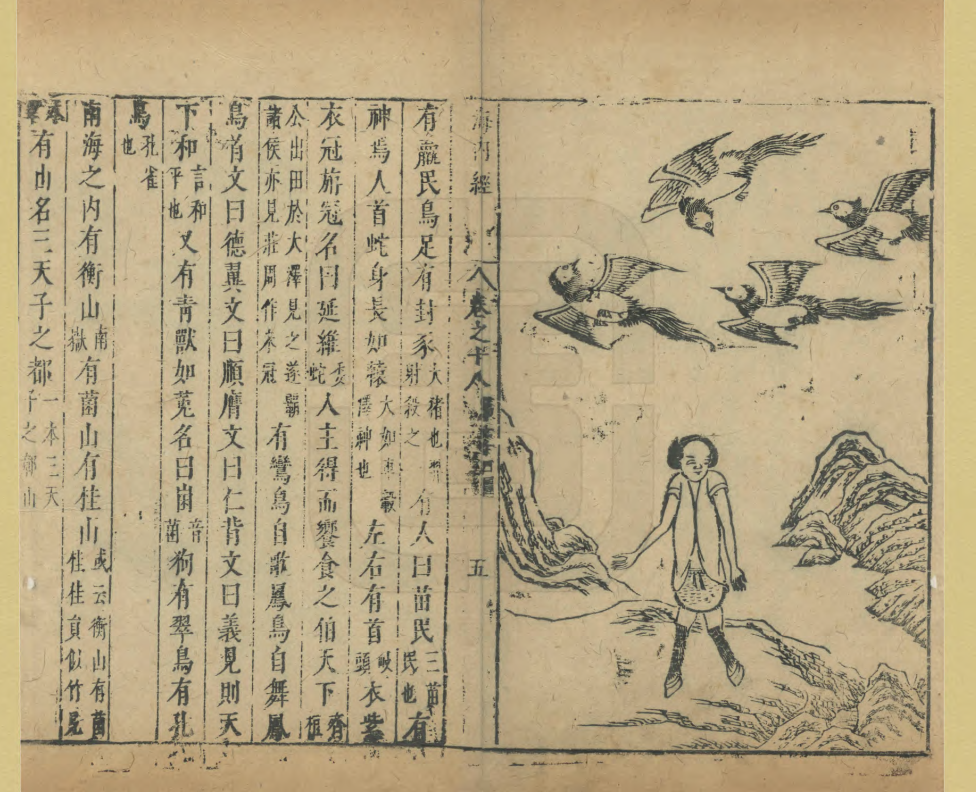 海內經 卷之十八 五
有嬴民鳥足有封豕大猪也羿射殺之有人曰苗民三苗民也有
神焉人首蛇身長如轅大如車轂澤神也左右有首岐頭衣紫
衣冠旃冠名曰延維委蛇人主得而饗食之伯天下齊桓
公出田於大澤見之遂霸諸侯亦見莊周作朱冠有鸞鳥自歌鳳鳥自舞鳳
鳥首文曰德翼文曰順膺文曰仁背文曰義見則天
下和言和平也又有青獸如菟名曰㘝音菌狗有翠鳥有孔
鳥孔雀也
南海之內有衡山南嶽有菌山有桂山或云衡山有菌桂桂員似竹見
本草有山名三天子之都一本三天子之鄣山